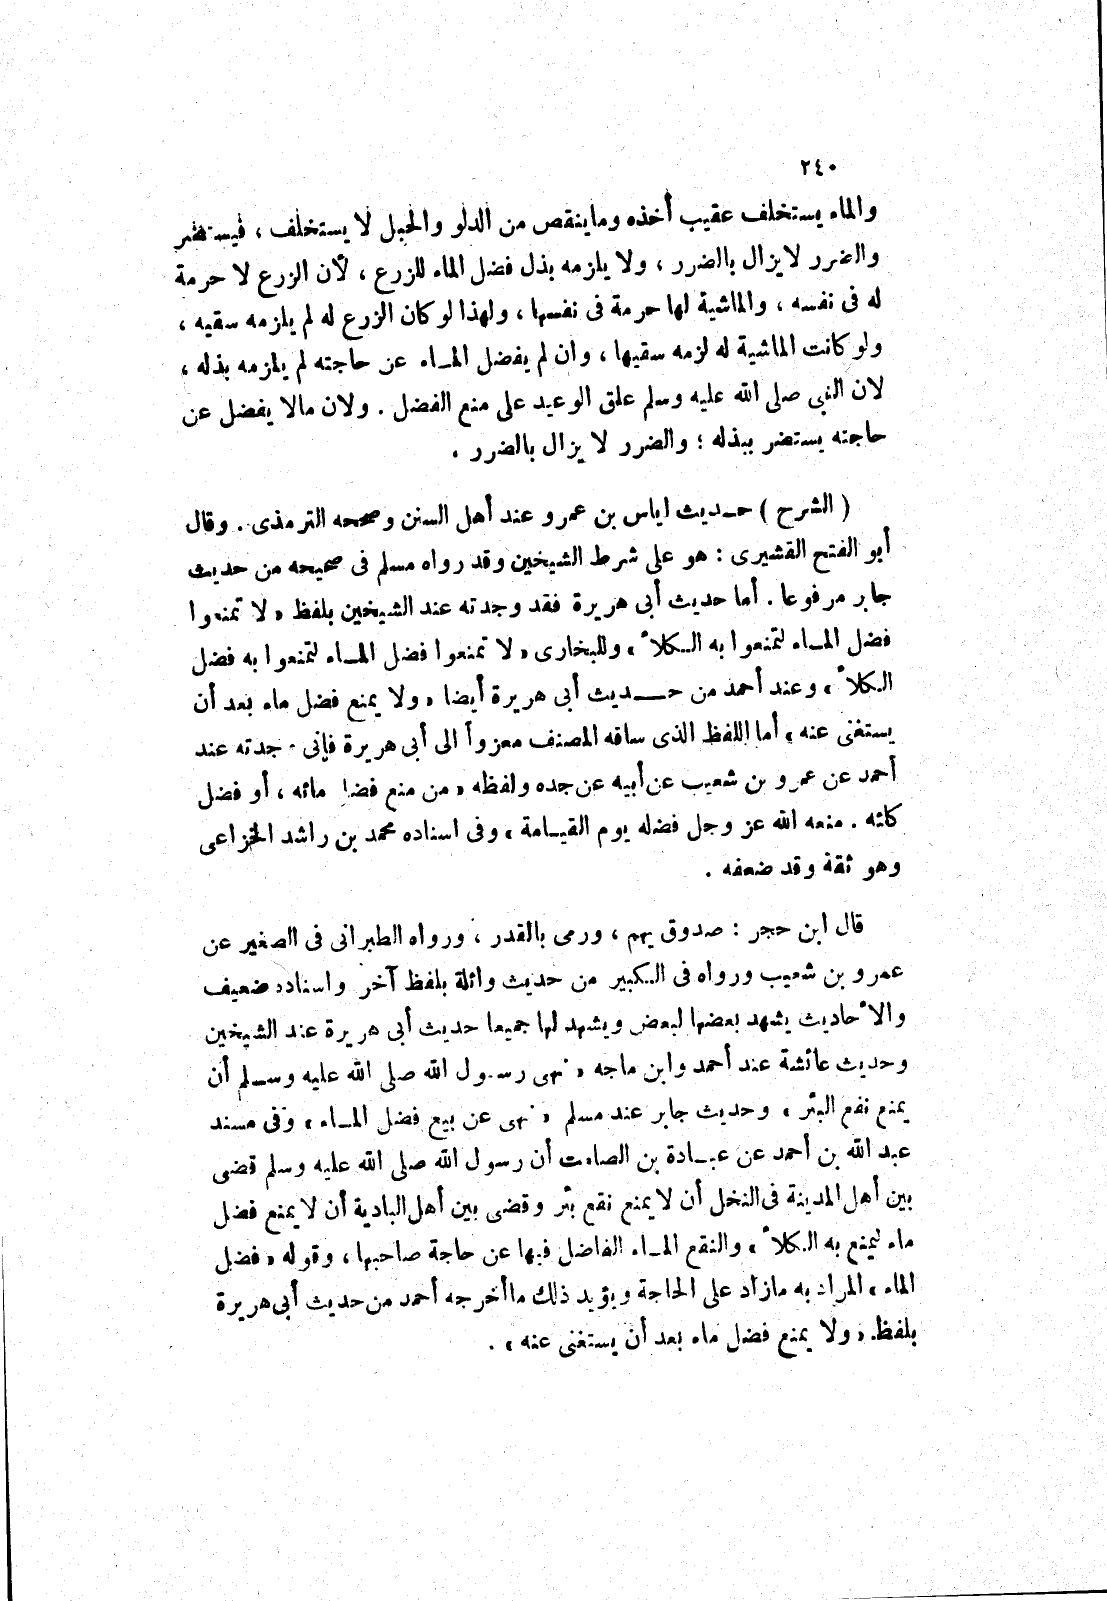 ٢٤٠
والماء يستخلف عقيب أخذه وماينقص من الدلو والحبل لا يستخلف ، فيستضر
والضرر لايزال بالضرر ، ولا يلزمه بذل فضل الماء للزرع ، لأن الزرع لا حرمة
له فى نفسه ، والماشية لها حرمة فى نفسها ، ولهذا لو كان الزرع له لم يلزمه سقيه ،
ولو كانت الماشية له لزمه سقيها ، وان لم يفضل المـاء عن حاجته لم يلزمه بذله ،
لان النبى صلى الله عليه وسلم علق الوعيد على منع الفضل . ولان مالا يفضل عن
حاجته يستضر ببذله ؛ والضرر لا يزال بالضرر .
( الشرح ) حـديث اياس بن عمرو عند أهل السنن وصححه الترمذى . وقال
أبو الفتح القشيرى : هو على شرط الشيخين وقد رواه مسلم فى صحيحه من حديث
جابر مرفوعا . أما حديث أبى هريرة فقد وجدته عند الشيخين بلفظ « لا تمنعوا
فضل المـاء لتمنعوا به الـكلأ » وللبخارى « لا تمنعوا فضل المـاء لتمنعوا به فضل
الـكلأ » وعند أحمد من حـــديث أبى هريرة أيضا « ولا يمنع فضل ماء بعد أن
يستغنى عنه » أما اللفظ الذى ساقه المصنف معزواً الى أبى هريرة فإنى وجدته عند
أحمد عن عمرو بن شعيب عن أبيه عن جده ولفظه « من منع فضل مائه ، أو فضل
كلئه . منعه الله عز وجل فضله يوم القيـامة » وفى اسناده محمد بن راشد الخزاعى
وهو ثقة وقد ضعفه .
قال ابن حجر : صدوق يهم ، ورمى بالقدر ، ورواه الطبرانى فى الصغير عن
عمرو بن شعيب ورواه فى الـكبير من حديث واثلة بلفظ آخر واسناده ضعيف
والأحاديث يشهد بعضها لبعض ويشهد لها جميعا حديث أبى هريرة عند الشيخين
وحديث عائشة عند أحمد وابن ماجه « نهى رسول الله صلى الله عليه وسـلم أن
يمنع نقع البئر » وحديث جابر عند مسلم « نهى عن بيع فضل المـاء » وفى مسند
عبد الله بن أحمد عن عبـادة بن الصامت أن رسول الله صلى الله عليه وسلم قضى
بين أهل المدينة فى النخل أن لا يمنع نقع بئر وقضى بين أهل البادية أن لا يمنع فضل
ماء ليمنع به الـكلأ » والنقع المـاء الفاضل فيها عن حاجة صاحبها ، وقوله « فضل
الماء » المراد به مازاد على الحاجة ويؤيد ذلك ما أخرجه أحمد من حديث أبى هريرة
بلفظ « ولا يمنع فضل ماء بعد أن يستغنى عنه » .